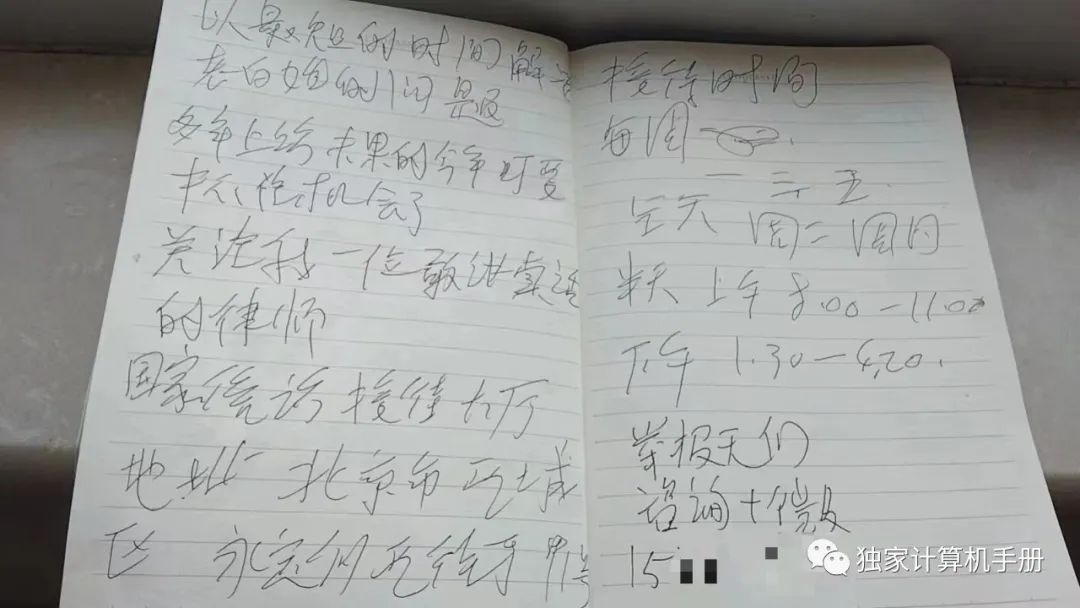 以最短的时间解
老百姓的问题
多年上访未果的今年可要
抓住机会了
关注我一位敢说实话
的律师
国家信访接待大厅
地址 北京市西城
区 永定门西街 甲
接待时间
每周一
一 三 五
全天 周二 周四
半天 上午 8:00-11:00
下午 1.30-4.20.
举报天们
咨询+微
15
独家计算机手册